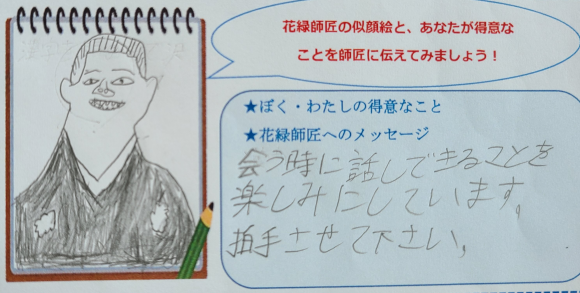 花緑師匠の似顔絵と、あなたが得意な
ことを師匠に伝えてみましょう！
★ぼく・わたしの得意なこと
★花緑師匠へのメッセージ
会う時に話しできることを
楽しみにしています。
拍手させて下さい。